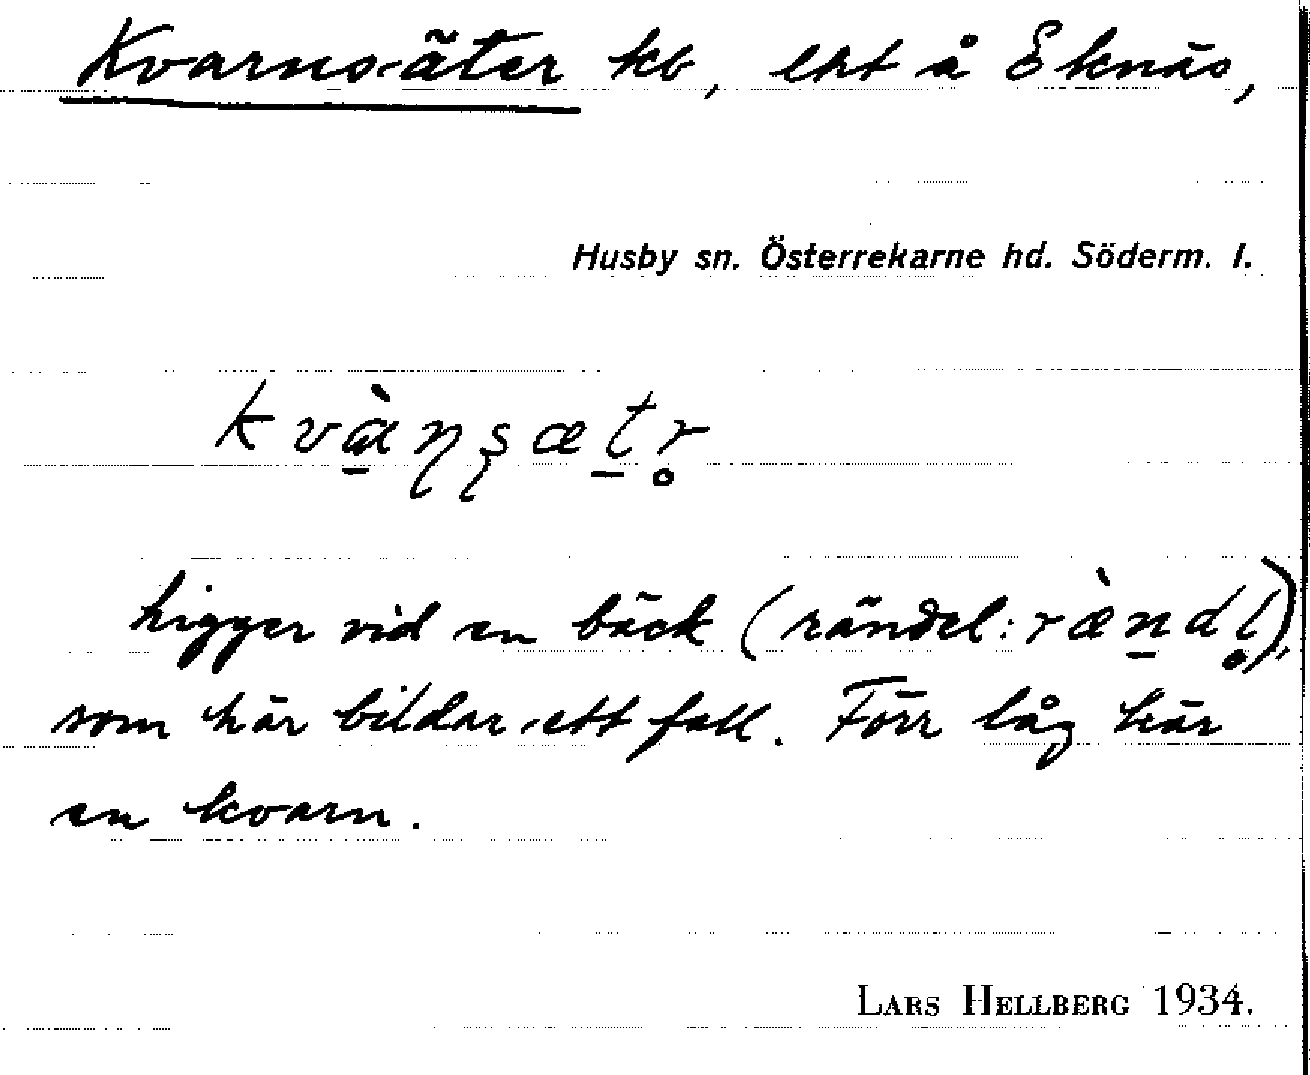 Kvarnsäter kb, ekt å Eknäs,
Husby sn. Österrekarne hd. Söderm. l.
kvàɳʂætr̥
Ligger vid en bäck (rändel: rændl̥),
som här bildar ett fall. Förr låg här
en kvarn.
LARS HELLBERG 1934.